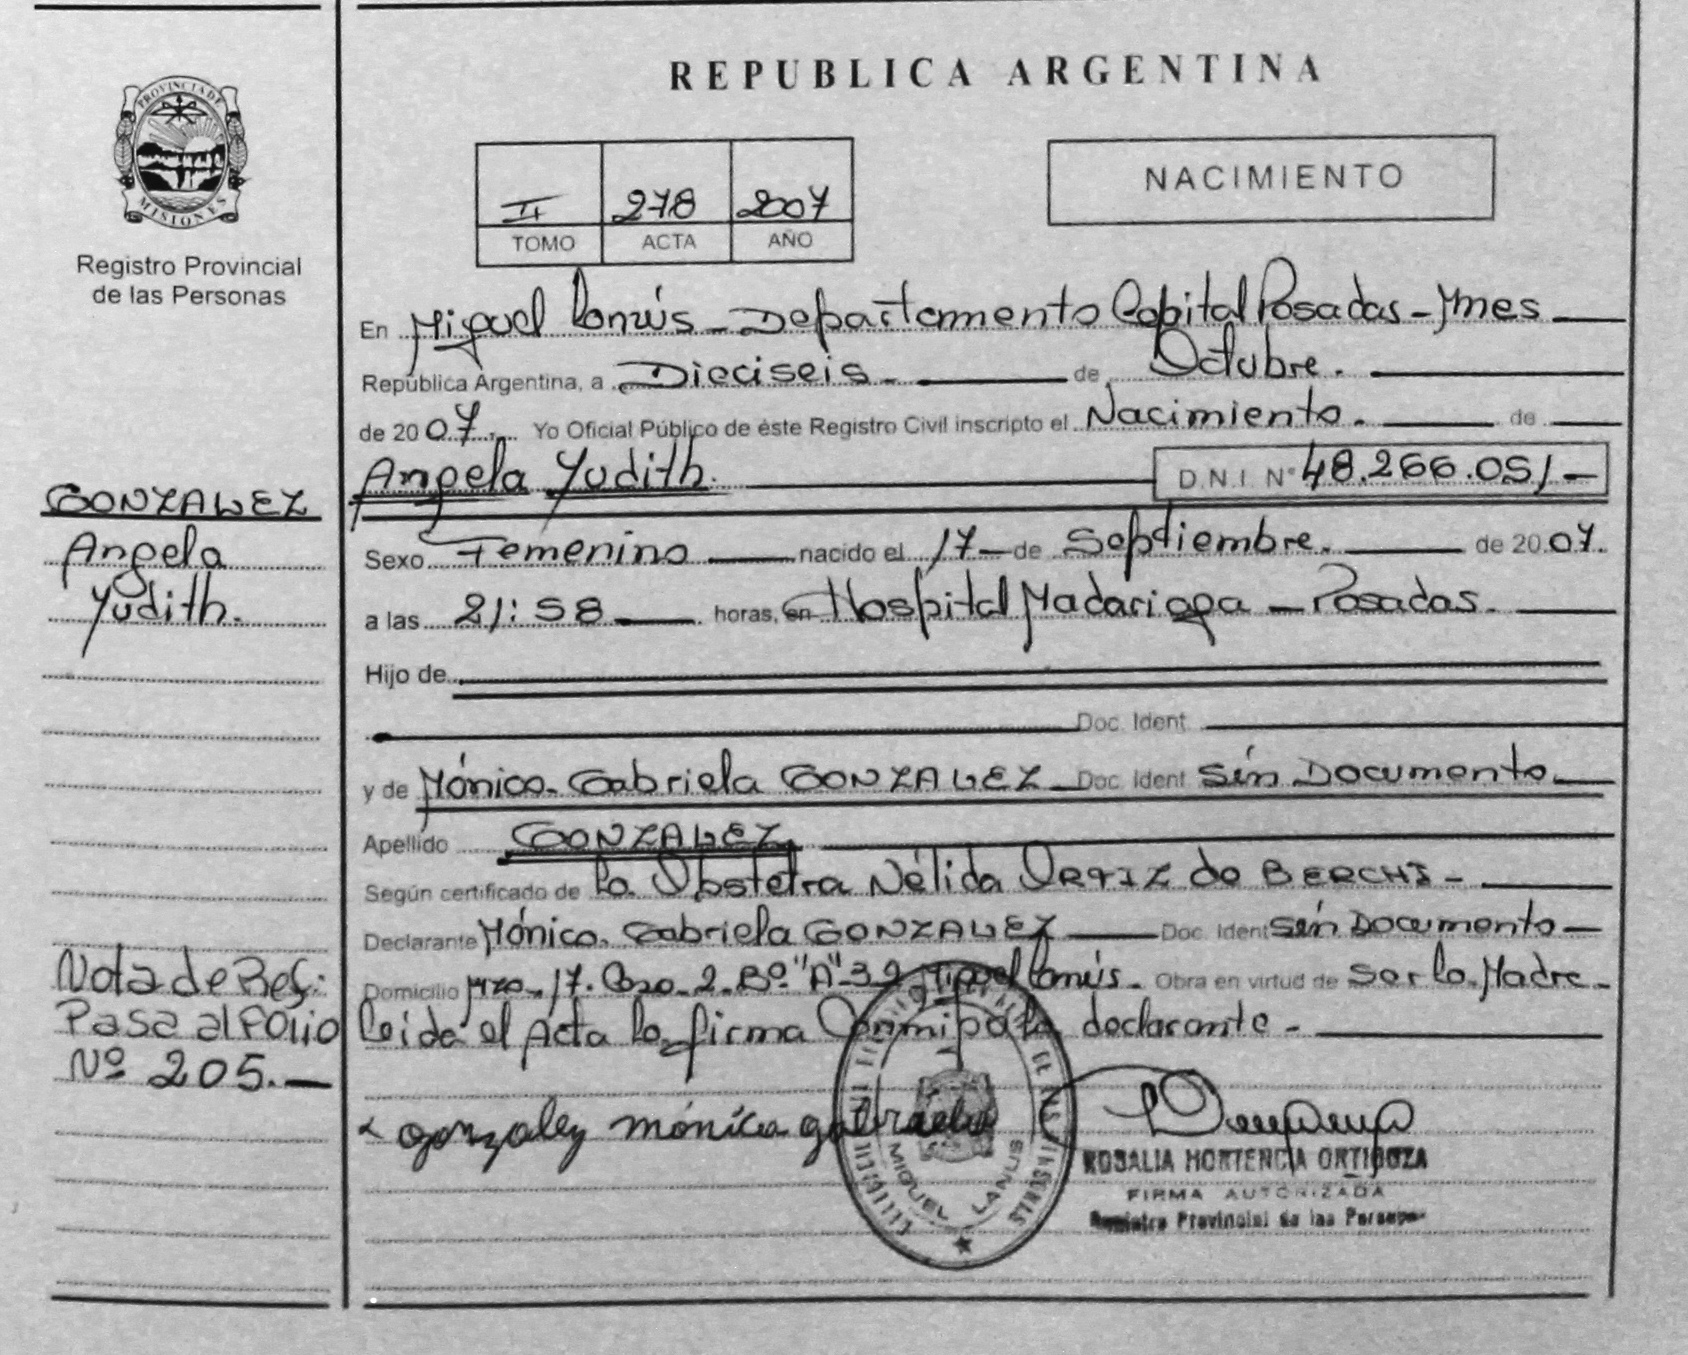 REPUBLICA ARGENTINA
PROVINCIA DE
MISIONES
Registro Provincial
de las Personas
II 278 2007
TOMO ACTA AÑO
NACIMIENTO
En Miguel Lanús - Departamento Capital Posadas - Mnes
República Argentina, a Dieciseis - de Octubre.
de 2007. Yo Oficial Público de éste Registro Civil inscripto el Nacimiento. de
Angela Yudith. D.N.I. Nº 48.266.051 -
GONZALEZ
Angela
Yudith.
Sexo Femenino nacido el 17 - de Septiembre. de 2007.
a las 21:58 horas, en Hospital Madariaga - Posadas.
Hijo de
Doc. Ident
y de Mónica Gabriela GONZALEZ Doc. Ident Sin Documento
Apellido GONZALEZ
Según certificado de la Obstetra Nélida ORTIZ de BERCHI -
Declarante Mónica Gabriela GONZALEZ Doc. Ident Sin Documento -
Domicilio Mza. 17. Casa 2 Bº "A" 3-2 Miguel Lanús. Obra en virtud de Ser la Madre -
Leida el Acta la firma Conmigo la declarante -
Nota de Ref:
Pasa al Folio
Nº 205. -
x gonzalez mónica gabriela
MIGUEL LANUS
ROSALIA HORTENCIA ORTIGOZA
FIRMA AUTORIZADA
Registro Provincial de las Personas